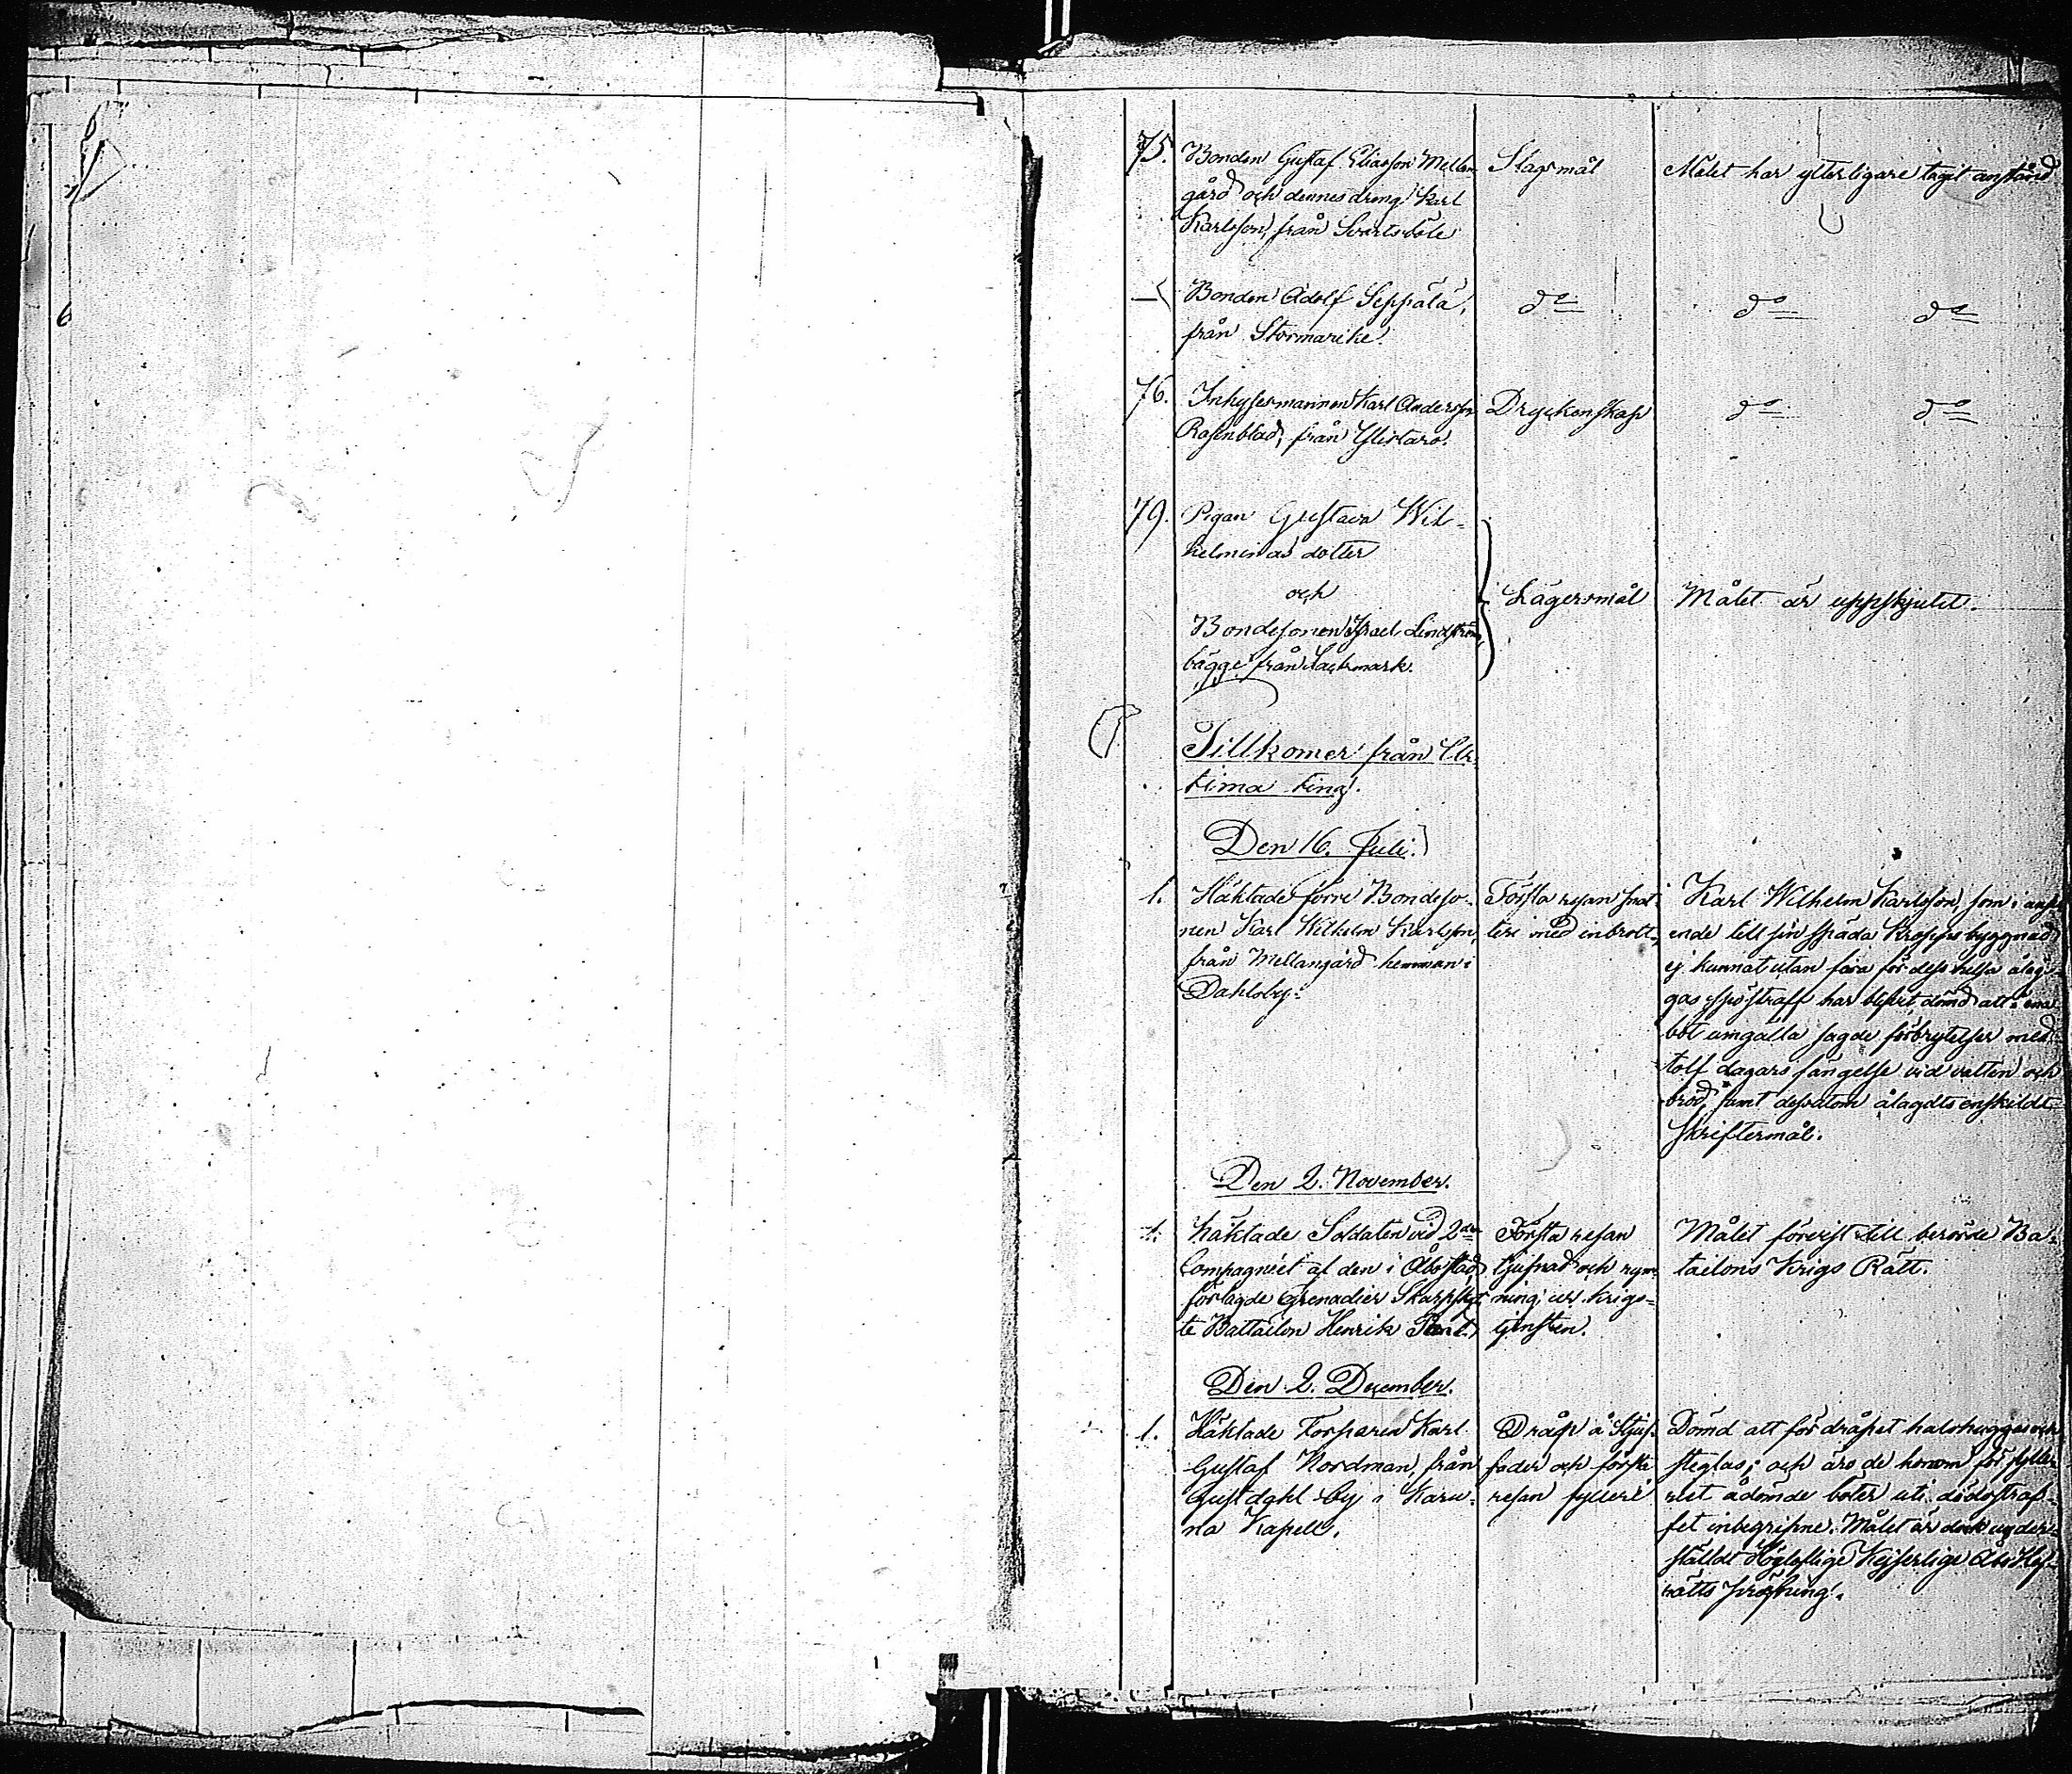 75. Bonden Gustaf Eliasson Mellan-
gård och dennes dreng Karl
Karlsson, från Svartsböle
Slagsmål
Målet har ytterligare tagit anstånd
— Bonden Adolf Seppälä,
från Stormarike.
do
do do
76. Inhysesmannen Karl Andersson
Rosenblad, från Yliskaro.
Dryckenskap
do do
79. Pigan Gustava Wil-
helminas dotter
och
Bondesonen Israel Lindström,
bägge från Lackmark.
Lägersmål
Målet är uppskjutet.
Tillkomer från Ur-
tima ting.
Den 16. Juli.
1. Häktade förre Bondeso-
nen Karl Wilhelm Karlsson,
från Mellangård hemman i
Dahlsby.
Första resan snat-
teri med inbrott,
Karl Wilhelm Karlsson, som i anse-
ende till sin späda kroppsbyggnad
ej kunnat utan fara för dess helsa åläg-
gas spöstraff har blifvit dömd att i ena
bot umgälla sagde förbrytelser med
tolf dagars fängelse vid vatten och
bröd, samt dessutom ålagdts enskildt
skriftermål.
Den 2. November.
1. häktade Soldaten vid 2dra
Compagniet af den i Åbo stad
förlagde Grenadier Skarpskyt-
te Battailon Henrik
Första resan
tjufnad och rym-
ning ur krigs-
tjensten.
Målet förvist till berörde Ba-
tailons Krigs Rätt.
Den 2. December.
1. Häktade Torparen Karl
Gustaf Nordman, från
Gustdahl by i Karu-
na Kapell.
Dråp å Stjuf-
fader och första
resan fylleri
Dömd att för dråpet halshuggas och
steglas; och äro de honom för fylle-
riet ådömde böter uti dödsstraf-
fet inbegripne. Målet är dock under-
ställdt Högloflige Kejserlige Åbo Hof-
rätts pröfning.